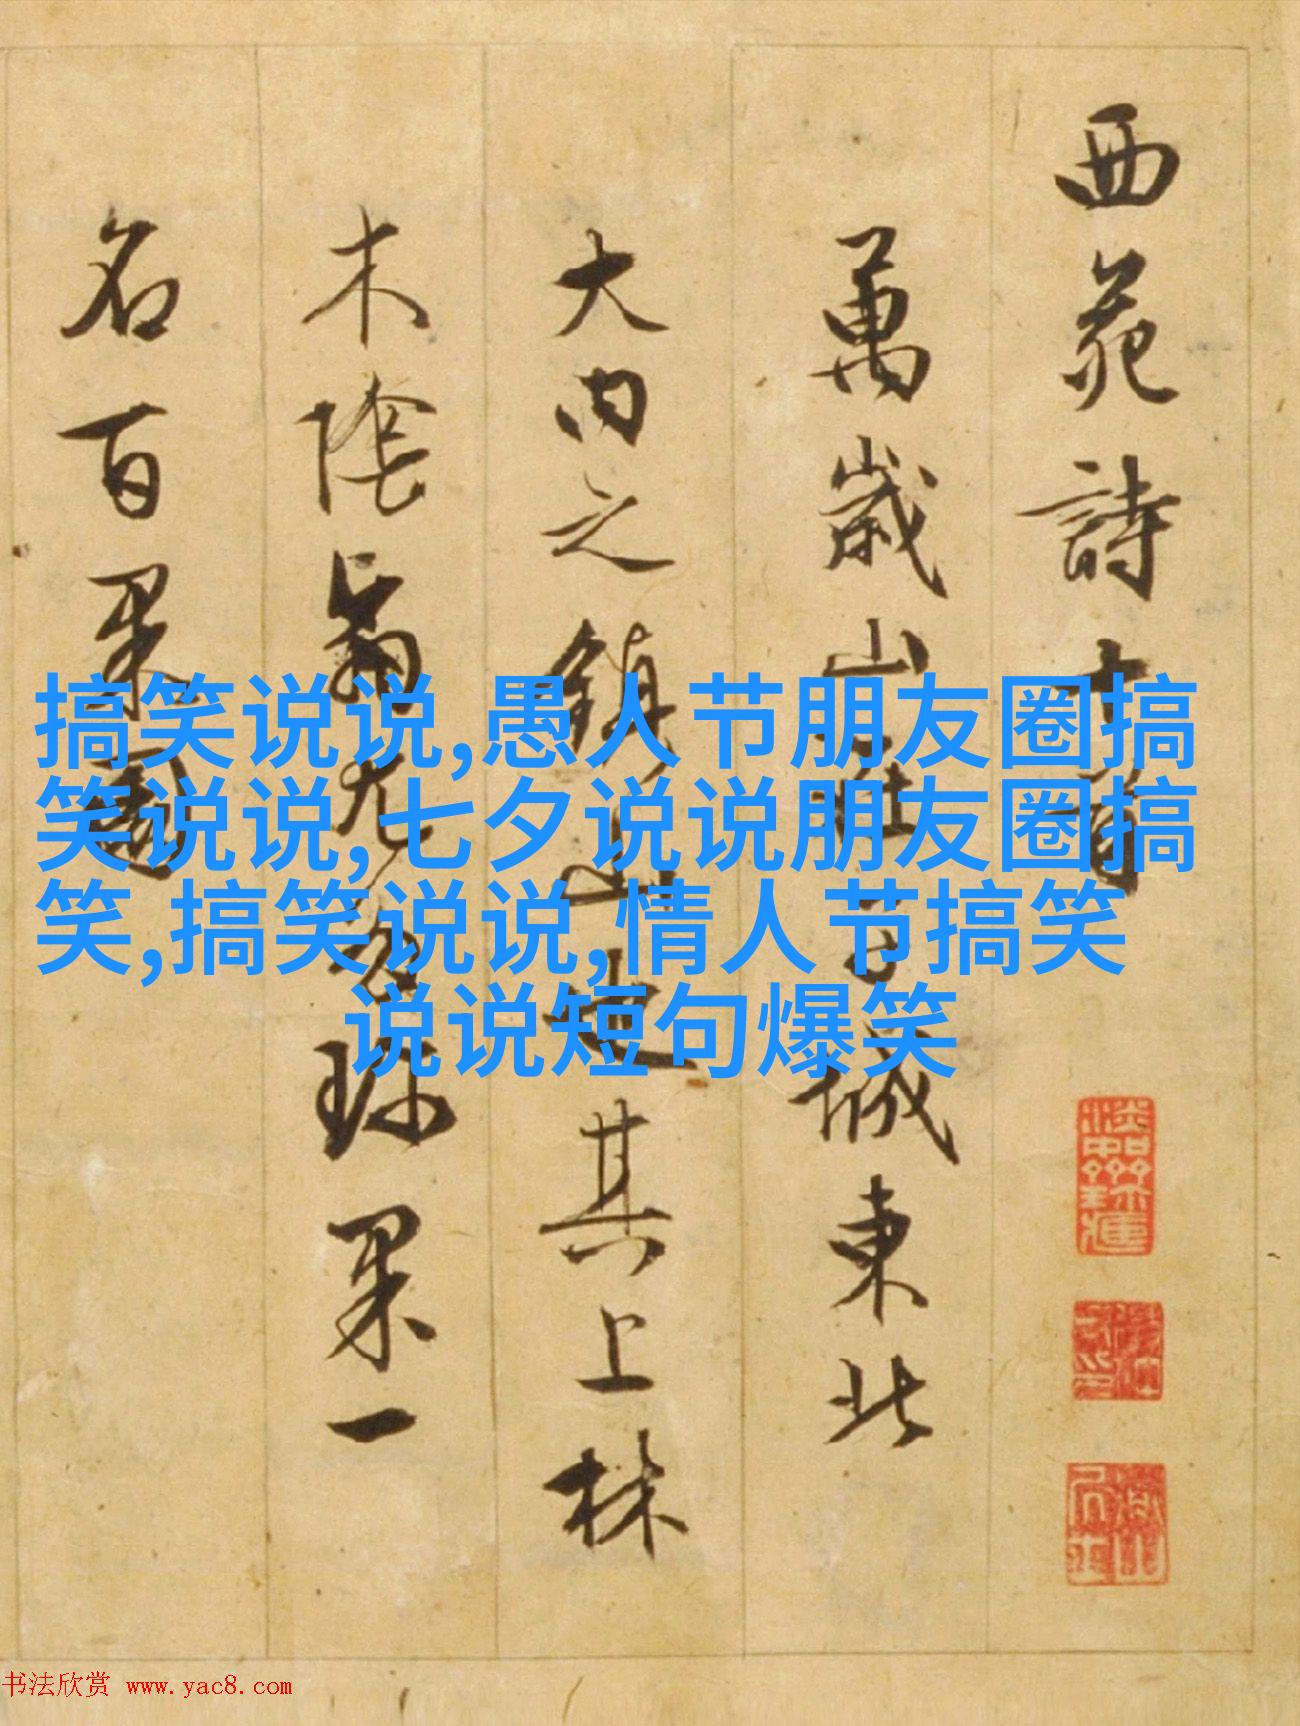 西苑詩十首
萬歲山在子城東北
大內之鎮山也其上林
木陰翳尤多珍果一
名百果園
搞笑说说,愚人节朋友圈搞
笑说说,七夕说说朋友圈搞
笑,搞笑说说,情人节搞笑
说说短句爆笑
书法欣赏 www.yac8.com